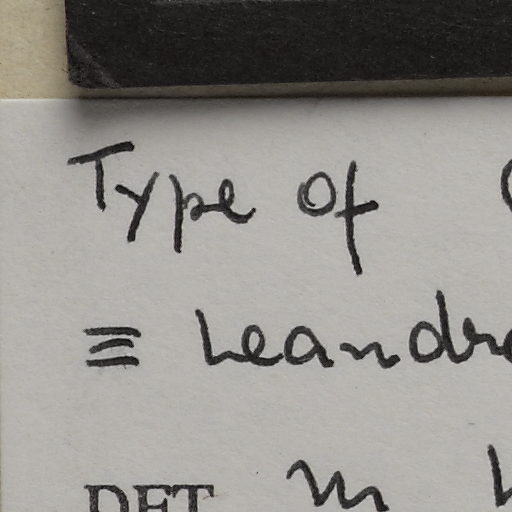 Type of
≡ Leandr
DET m